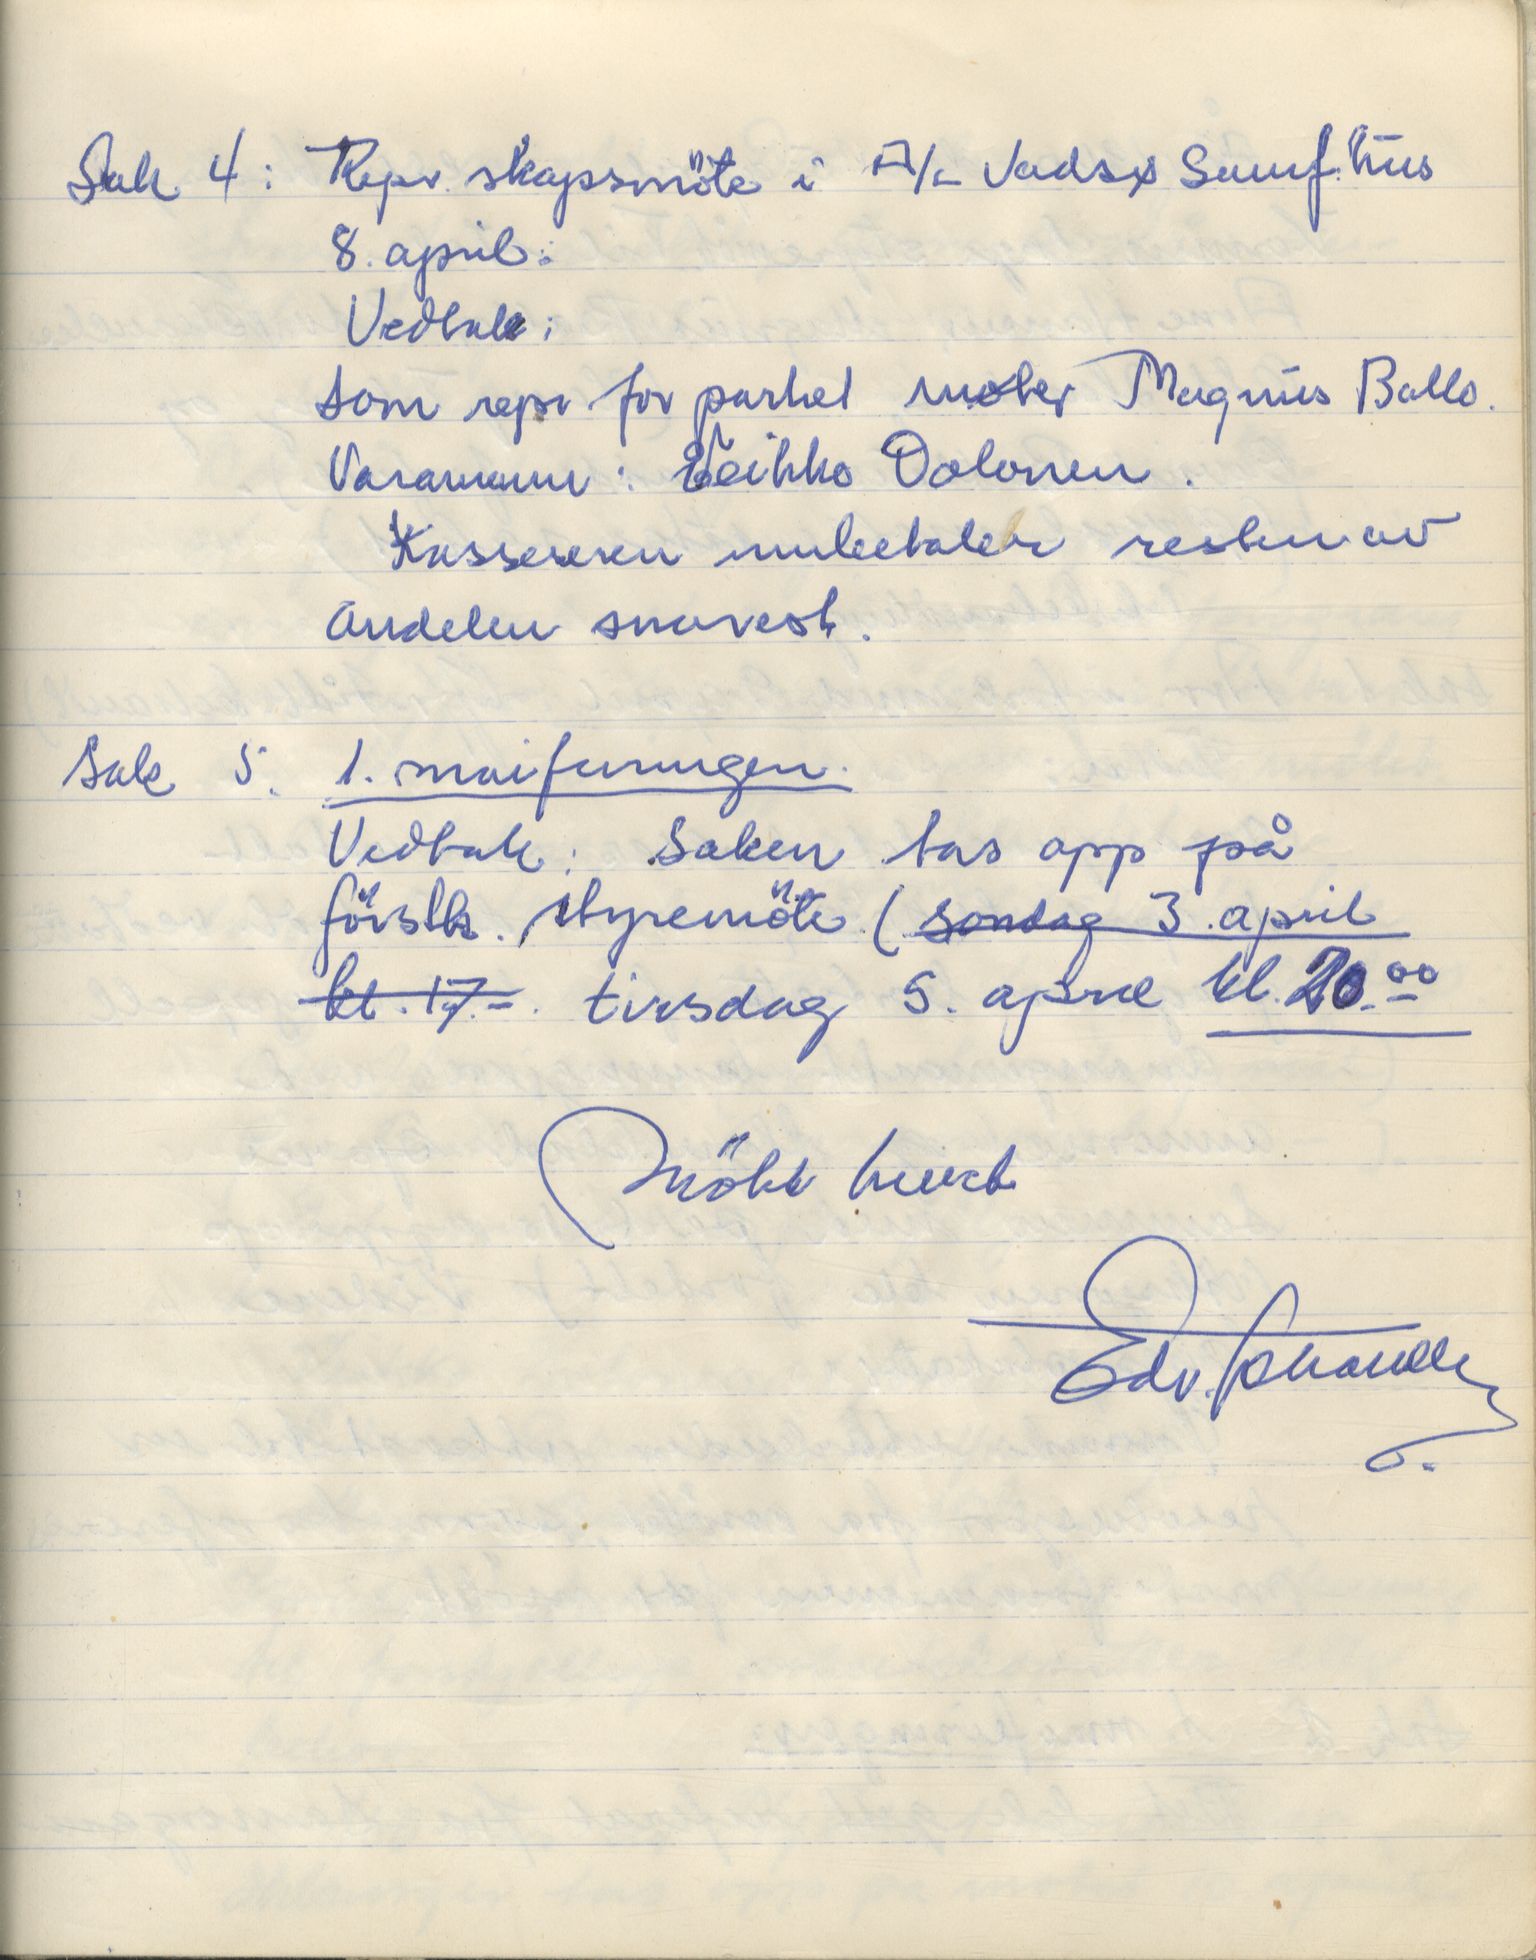 Sak 4: Repr.skapsmöte i A/L Vadsø Samf.hus
8. april:
Vedtak:
Som repr for partiet møter Magnus Ballo.
Varamann: Veikko Oolonen.
Kassereren innbetaler resten av
andelen snarest.
Sak 5. 1. maifeiringen.
Vedtak: Saken tas opp på
förstk. styremöte (søndag 3. april
kl. 17.– . tirsdag 5. april kl. 20.00
Möte hevet
Edv.